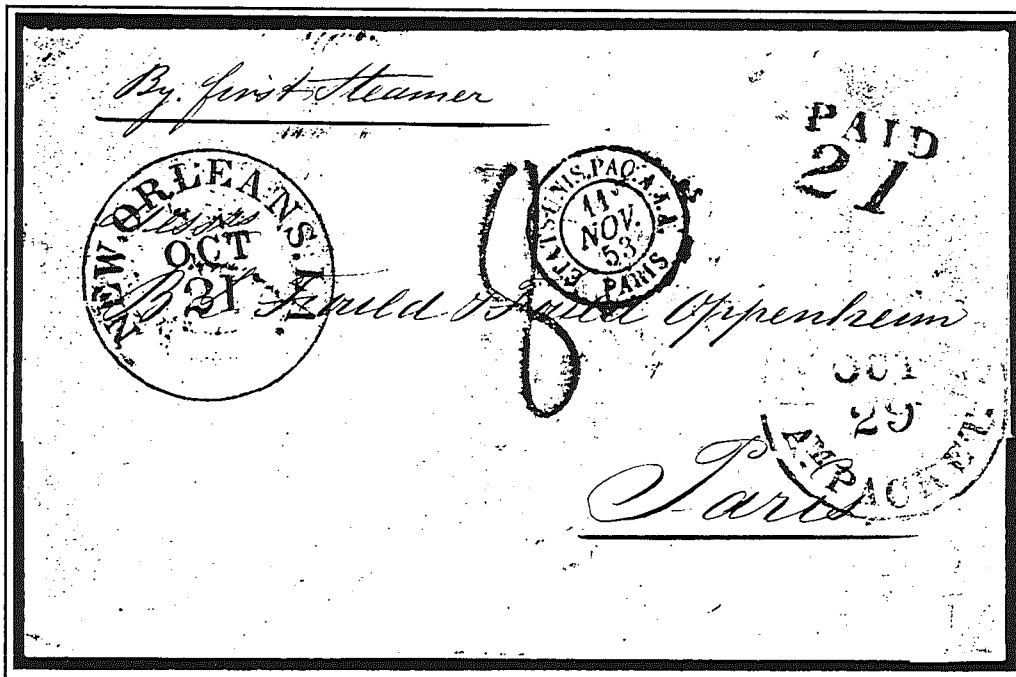 By. first Steamer
PAID
21
NEW.ORLEANS.La.
OCT
21
ETATS-UNIS.PAQ.A.A.A
11
NOV.
53
PARIS
8
Messrs
B L Fould & Fould Oppenheim
OCT
29
AM PACKET.
Paris